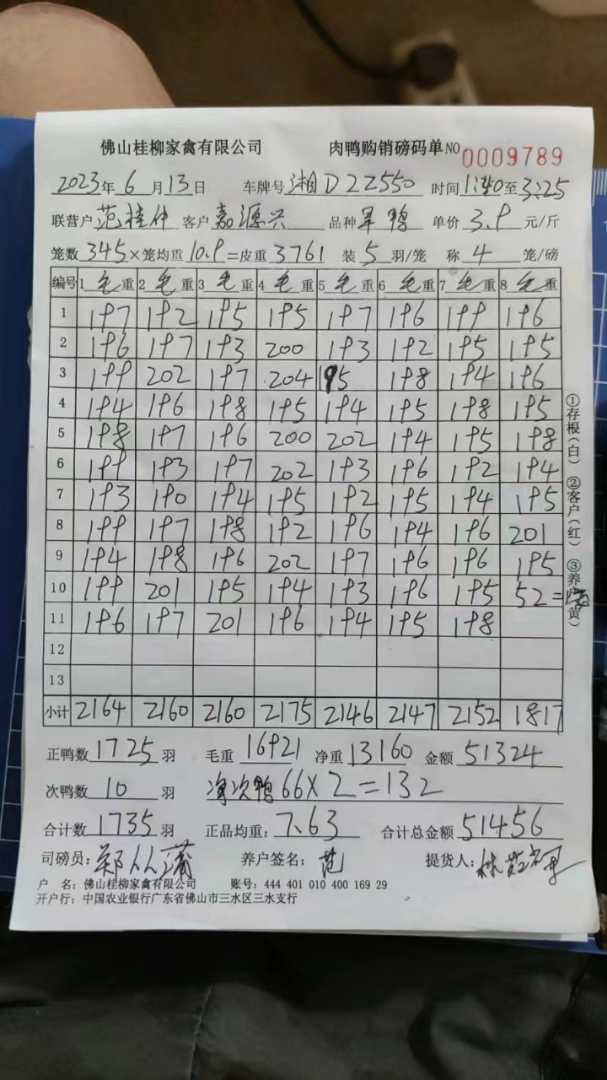 佛山桂柳家禽有限公司 肉鸭购销磅码单 NO 0009789
2023年6月13日 车牌号湘D22550 时间1:40至3:25
联营户范桂仲 客户嘉源兴 品种 鸭 单价3.9元/斤
笼数345×笼均重10.9=皮重3761 装5羽/笼 称4笼/磅
编号 1毛重 2毛重 3毛重 4毛重 5毛重 6毛重 7毛重 8毛重
1 197 192 195 195 197 196 199 196
2 196 197 193 200 193 192 195 195
3 199 202 197 204 195 198 194 196
4 194 196 198 195 194 195 198 195
5 198 197 196 200 202 194 195 198
6 199 193 197 202 193 196 192 194
7 193 190 194 195 192 195 194 195
8 199 197 198 192 196 194 196 201
9 194 198 196 202 197 196 196 195
10 199 201 195 194 193 196 195 52=
11 196 197 201 196 194 195 198
12
13
小计 2164 2160 2160 2175 2146 2147 2152 1817
正鸭数1725羽 毛重16921 净重13160 金额51324
次鸭数10羽 净次鸭66×2=132
合计数1735羽 正品均重:7.63 合计总金额51456
司磅员: 养户签名:范 提货人:
户 名:佛山桂柳家禽有限公司 账号:444 401 010 400 169 29
开户行:中国农业银行广东省佛山市三水区三水支行
①存根(白) ②客户(红) ③养户(黄)